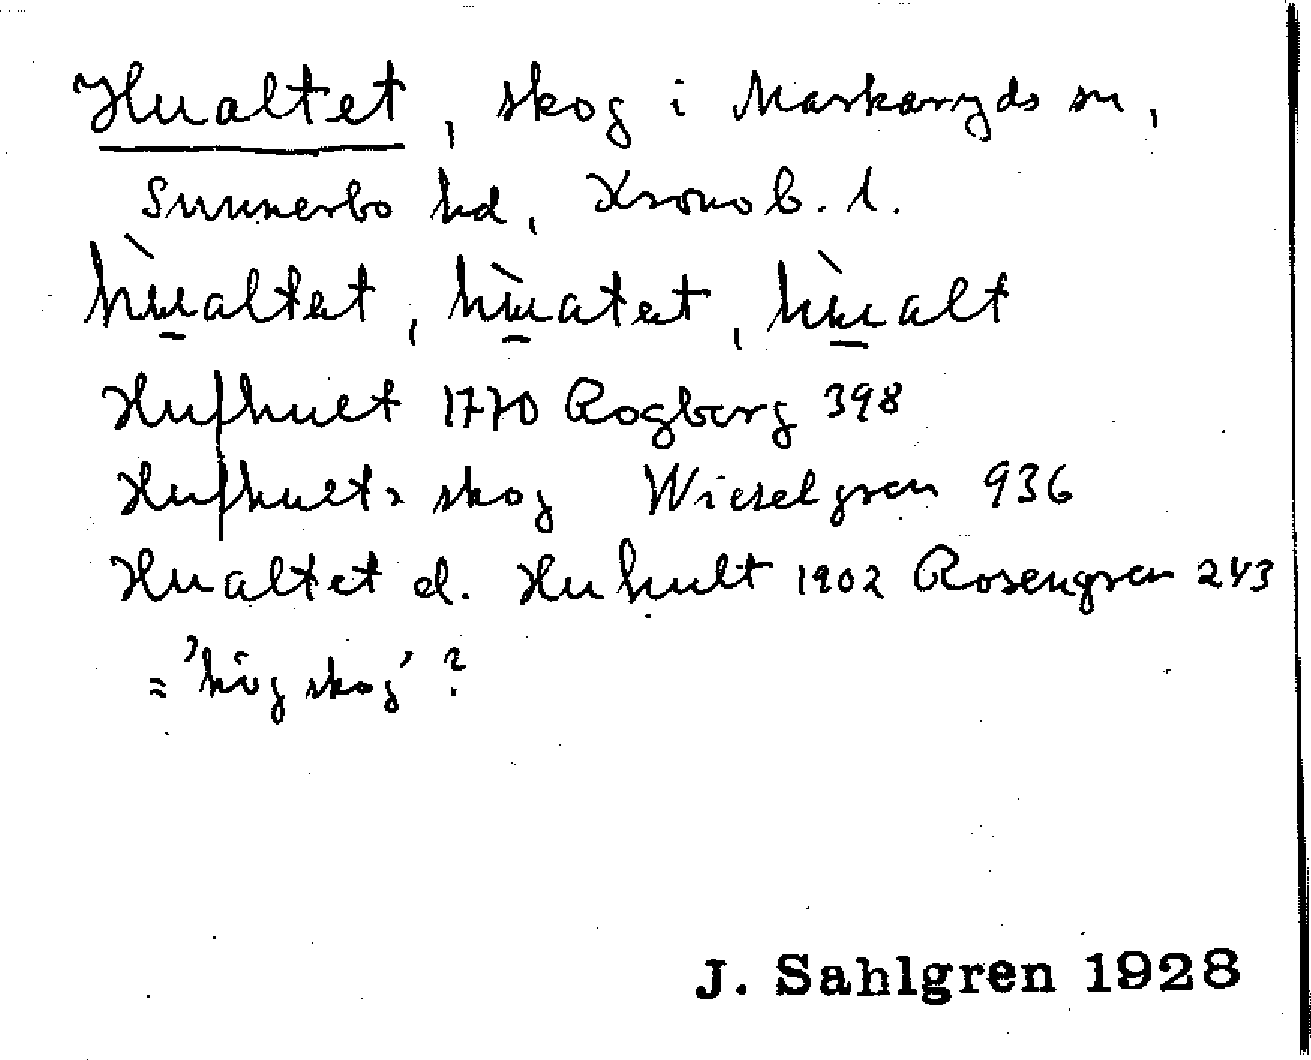 Hualtet, skog i Markaryds sn,
Sunnerbo hd, Kronob. l.
hùaltet, hùatet, hùalt
Hufhult 1770 Rogberg 398
Hufhults skog Wieselgren 936
Hualtet el. Huhult 1902 Rosengren 243
= 'hög skog' ?
J. Sahlgren 1928